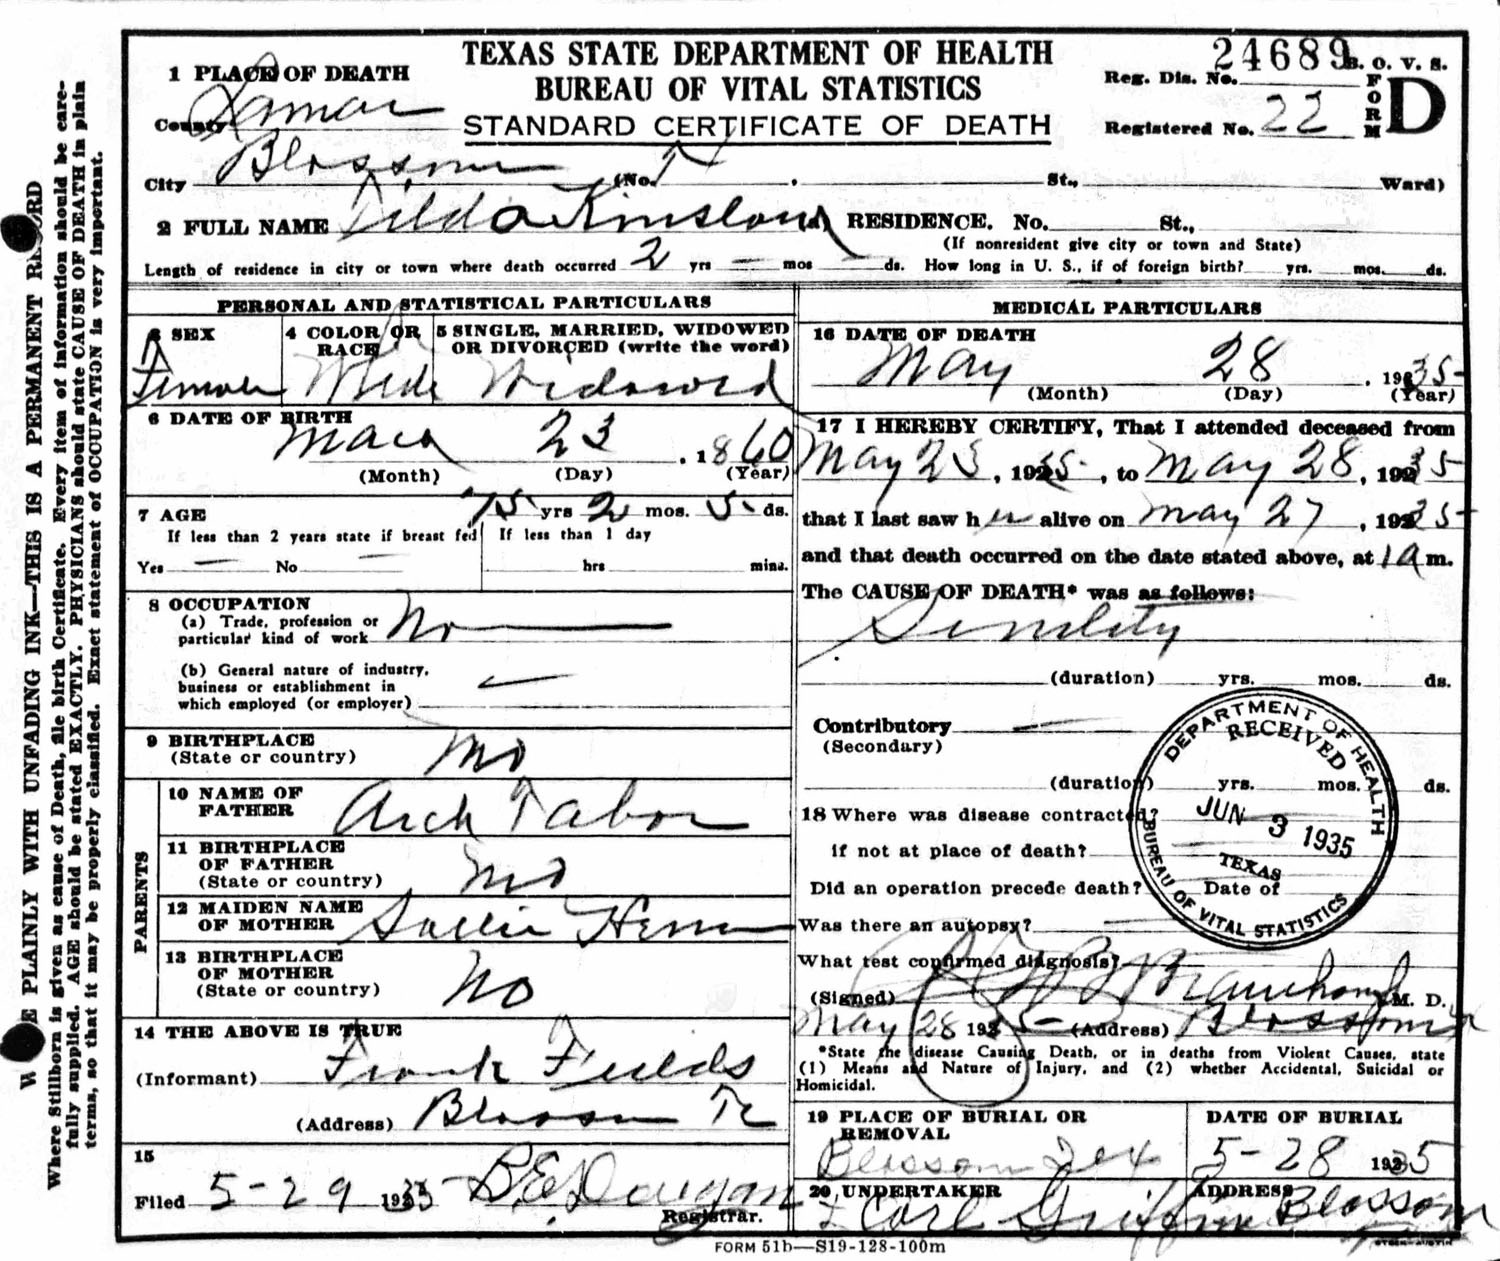 TEXAS STATE DEPARTMENT OF HEALTH
BUREAU OF VITAL STATISTICS
STANDARD CERTIFICATE OF DEATH
24689 B. O. V. S.
Reg. Dis. No.
Registered No. 22
FORM D
1 PLACE OF DEATH
County Lamar
City Blossom (No. St., Ward)
2 FULL NAME Tilda Kinsland RESIDENCE. No. St.,
(If nonresident give city or town and State)
Length of residence in city or town where death occurred 2 yrs — mos ds. How long in U. S., if of foreign birth? yrs. mos. ds.
PERSONAL AND STATISTICAL PARTICULARS
3 SEX
Female
4 COLOR OR RACE
White
5 SINGLE, MARRIED, WIDOWED
OR DIVORCED (write the word)
Widowed
6 DATE OF BIRTH
Mach 23, 1860
(Month) (Day) (Year)
7 AGE 75 yrs 2 mos. 5 ds.
If less than 2 years state if breast fed If less than 1 day
Yes — No — hrs mins.
8 OCCUPATION
(a) Trade, profession or
particular kind of work No
(b) General nature of industry,
business or establishment in
which employed (or employer)
9 BIRTHPLACE
(State or country) Mo
PARENTS
10 NAME OF
FATHER Arch Tabor
11 BIRTHPLACE
OF FATHER
(State or country) Mo
12 MAIDEN NAME
OF MOTHER Sallie
13 BIRTHPLACE
OF MOTHER
(State or country) No
14 THE ABOVE IS TRUE
(Informant) Frank Fields
(Address) Blossom Tx
15
Filed 5-29 1935
Registrar.
MEDICAL PARTICULARS
16 DATE OF DEATH
May 28, 1935
(Month) (Day) (Year)
17 I HEREBY CERTIFY, That I attended deceased from
May 25, 1935, to May 28, 1935
that I last saw her alive on May 27, 1935
and that death occurred on the date stated above, at 1 a m.
The CAUSE OF DEATH* was as follows:
Senility
(duration) yrs. mos. ds.
Contributory
(Secondary)
(duration) yrs. mos. ds.
18 Where was disease contracted?
if not at place of death?
Did an operation precede death? Date of
Was there an autopsy?
What test confirmed diagnosis?
(Signed) M. D.
May 28 1935 (Address) Blossom
*State the disease Causing Death, or in deaths from Violent Causes, state
(1) Means and Nature of Injury, and (2) whether Accidental, Suicidal or
Homicidal.
19 PLACE OF BURIAL OR
REMOVAL
Blossom Tex
DATE OF BURIAL
5-28 1935
20 UNDERTAKER
Carl Griffin
ADDRESS
Blossom
DEPARTMENT OF HEALTH
RECEIVED
JUN 3 1935
TEXAS
BUREAU OF VITAL STATISTICS
FORM 51b—S19-128-100m
PLAINLY WITH UNFADING INK—THIS IS A PERMANENT RECORD
Where Stillborn is given as cause of Death, file birth Certificate. Every item of information should be care-
fully supplied. AGE should be stated EXACTLY. PHYSICIANS should state CAUSE OF DEATH in plain
terms, so that it may be properly classified. Exact statement of OCCUPATION is very important.